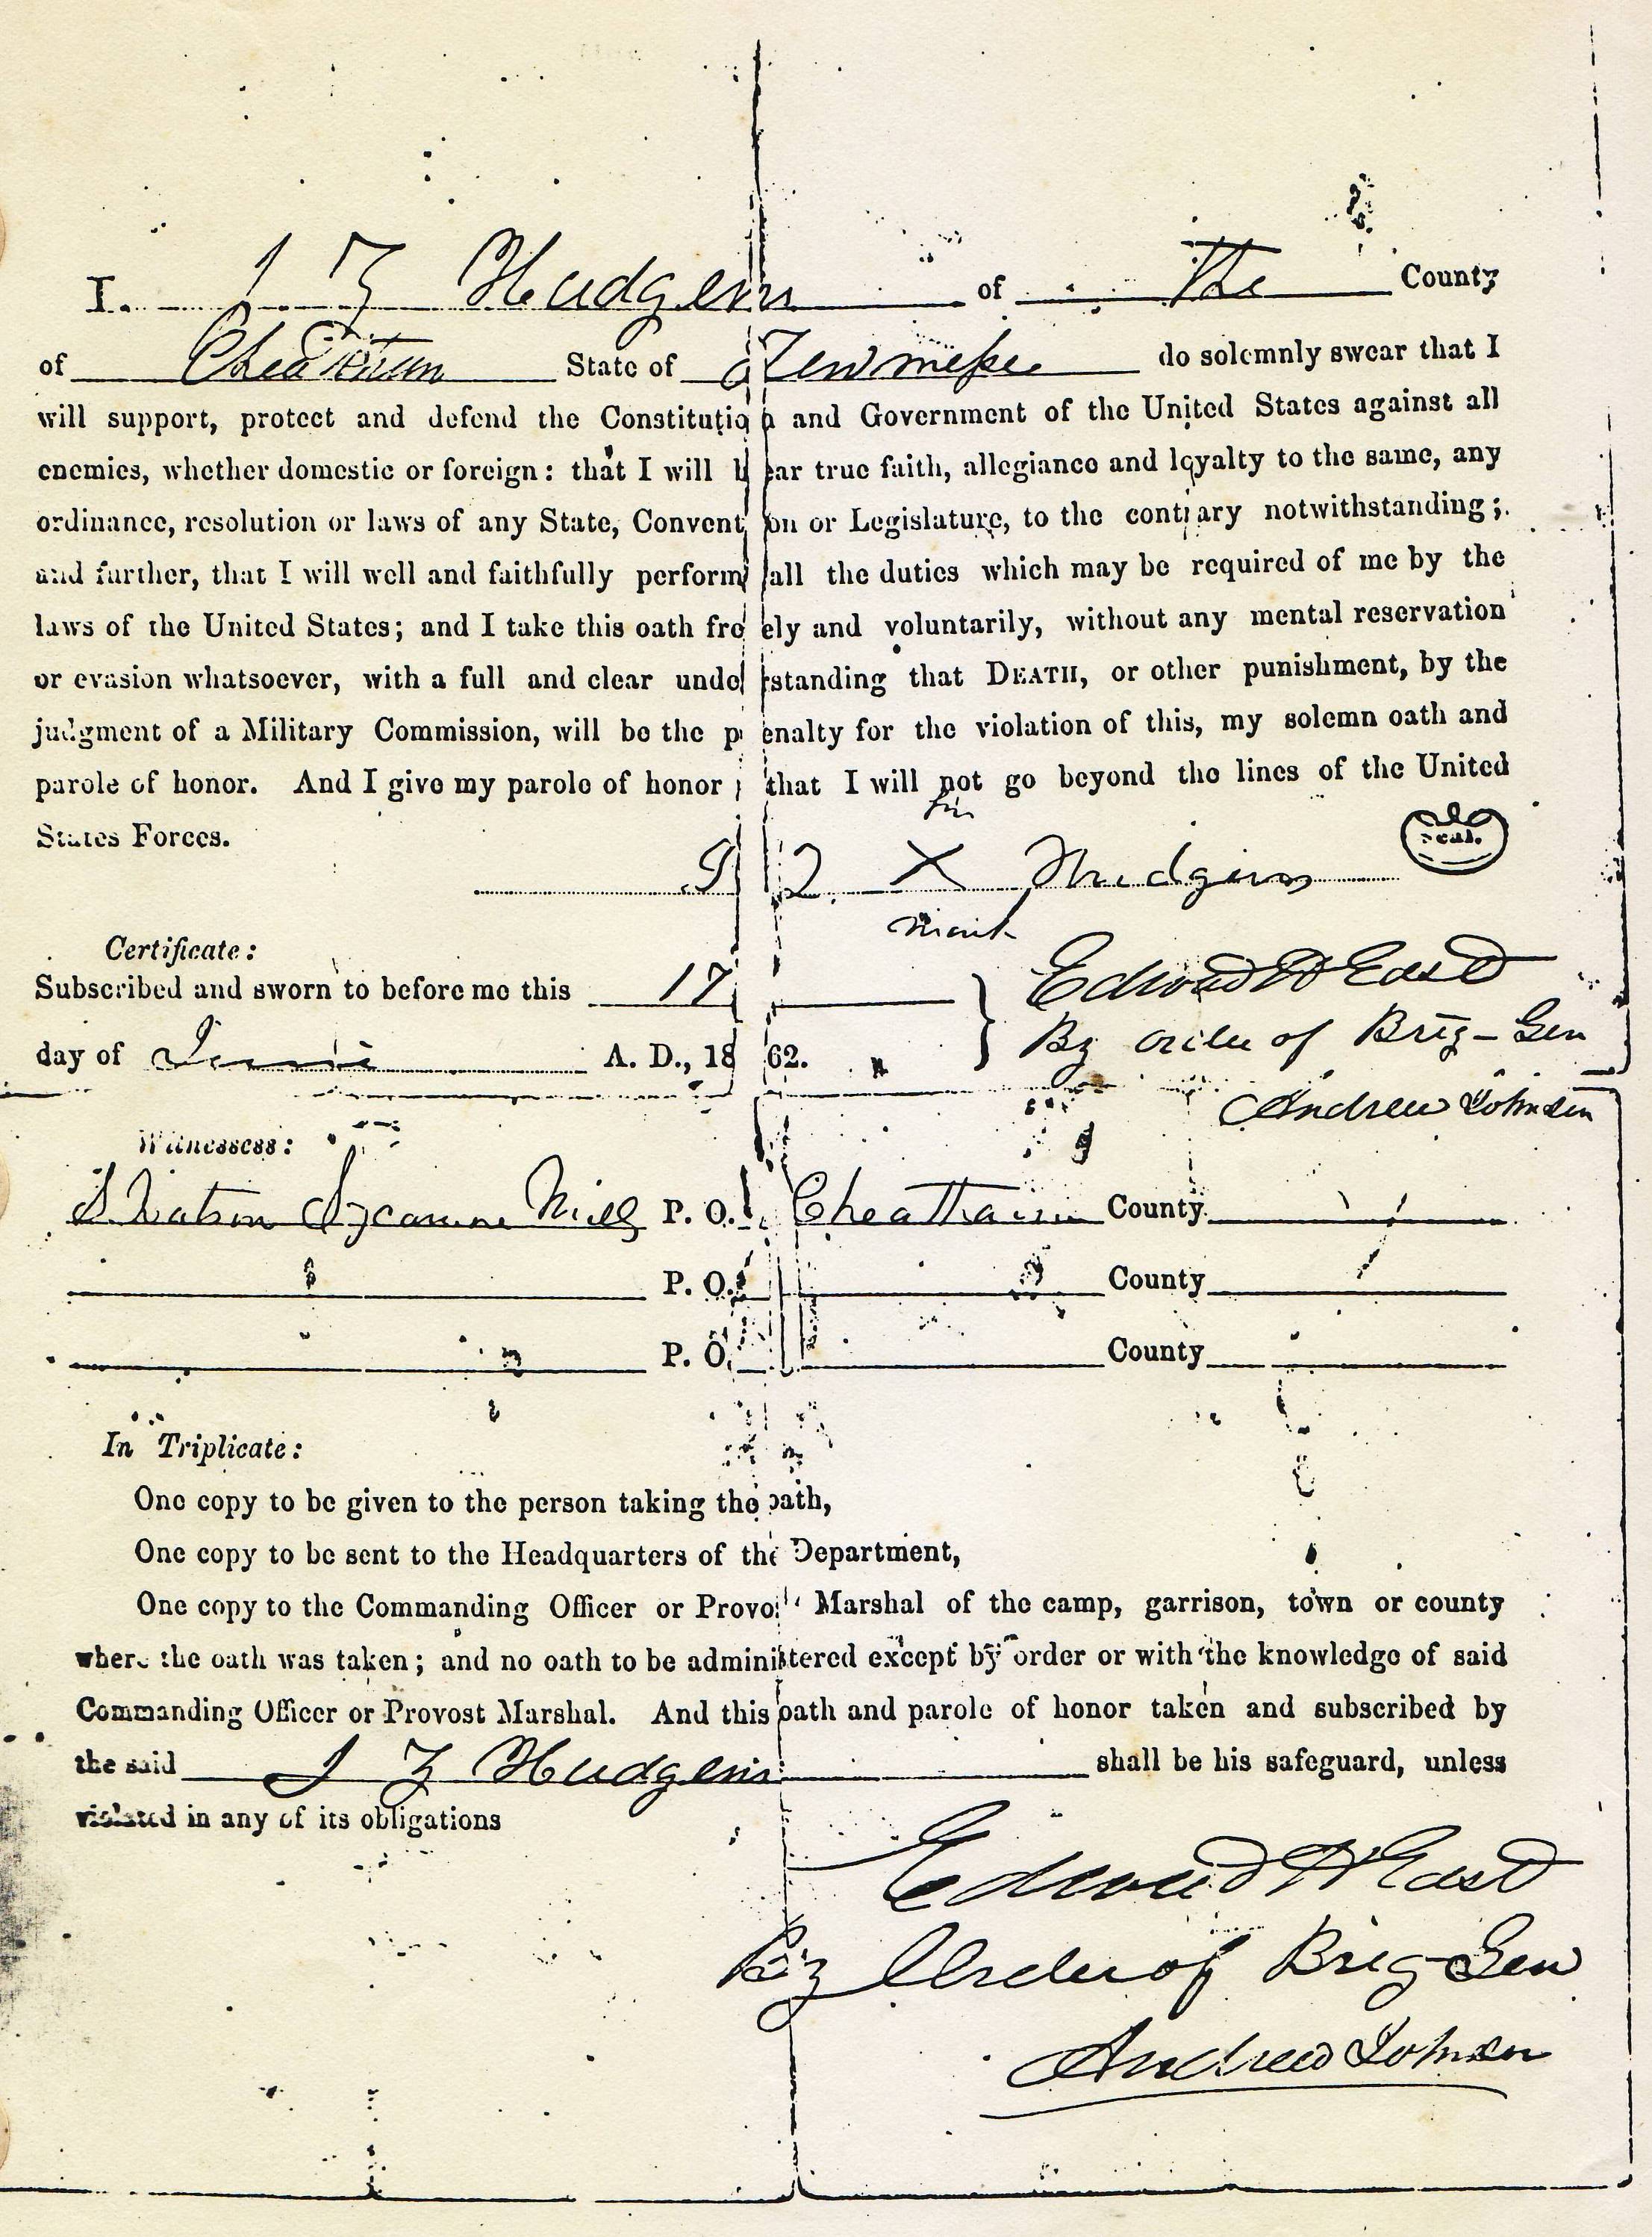 I. J Z Hudgens of the County
of Cheatham State of Tennessee do solemnly swear that I
will support, protect and defend the Constitution and Government of the United States against all
enemies, whether domestic or foreign: that I will bear true faith, allegiance and loyalty to the same, any
ordinance, resolution or laws of any State, Convention or Legislature, to the contrary notwithstanding;
and further, that I will well and faithfully perform all the duties which may be required of me by the
laws of the United States; and I take this oath freely and voluntarily, without any mental reservation
or evasion whatsoever, with a full and clear understanding that DEATH, or other punishment, by the
judgment of a Military Commission, will be the penalty for the violation of this, my solemn oath and
parole of honor. And I give my parole of honor that I will not go beyond the lines of the United
States Forces.
his
X Hudgins seal.
mark
Certificate:
Subscribed and sworn to before me this 17
day of June A. D., 1862.
Edward H East
By order of Brig-Gen
Andrew Johnson
Witnessess:
Watson Sycamore Mills P. O. Cheatham County
P. O. County
P. O. County
In Triplicate:
One copy to be given to the person taking the oath,
One copy to be sent to the Headquarters of the Department,
One copy to the Commanding Officer or Provost Marshal of the camp, garrison, town or county
where the oath was taken; and no oath to be administered except by order or with the knowledge of said
Commanding Officer or Provost Marshal. And this oath and parole of honor taken and subscribed by
the said J Z Hudgens shall be his safeguard, unless
violated in any of its obligations
Edward H East
By Order of Brig-Gen
Andrew Johnson